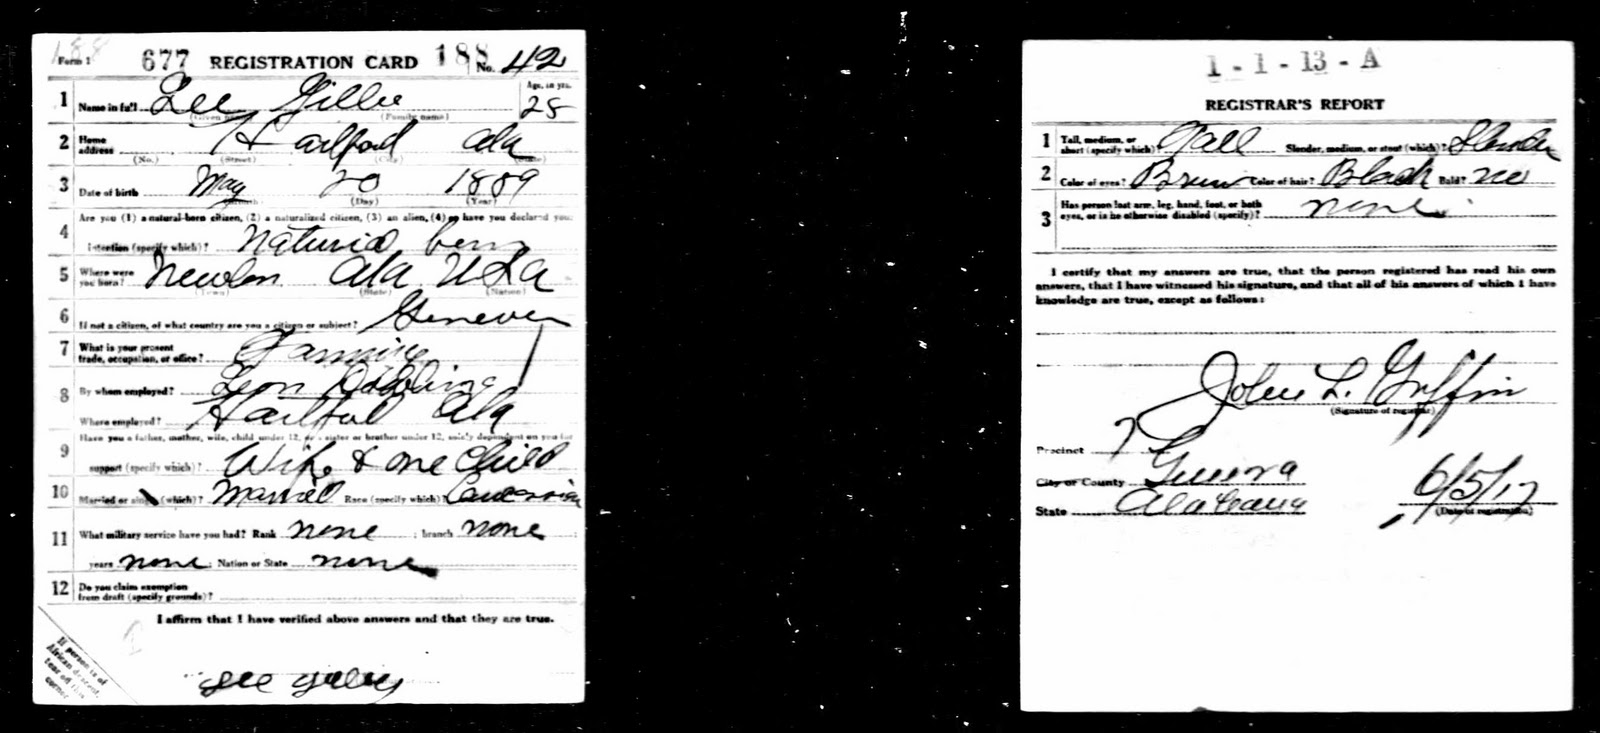 188
Form 1 677 REGISTRATION CARD 188 No. 42
1 Name in full Lee Gillie Age, in yrs. 28
(Given name) (Family name)
2 Home address Hartford Ala
(No.) (Street) (City) (State)
3 Date of birth May 20 1889
(Month) (Day) (Year)
4 Are you (1) a natural-born citizen, (2) a naturalized citizen, (3) an alien, (4) or have you declared your
intention (specify which)? Natural born
5 Where were you born? Newton Ala USA
(Town) (State) (Nation)
6 If not a citizen, of what country are you a citizen or subject? Geneva
7 What is your present trade, occupation, or office? Farming
8 By whom employed? Leon
Where employed? Hartford Ala
9 Have you a father, mother, wife, child under 12, or a sister or brother under 12, solely dependent on you for
support (specify which)? Wife & one Child
10 Married or single (which)? Married Race (specify which)? Caucasian
11 What military service have you had? Rank none ; branch none ;
years none ; Nation or State none
12 Do you claim exemption from draft (specify grounds)?
I affirm that I have verified above answers and that they are true.
Lee Gillie
If person is of
African descent,
tear off this
corner
1-1-13-A
REGISTRAR'S REPORT
1 Tall, medium, or short (specify which)? Tall Slender, medium, or stout (which)? Slender
2 Color of eyes? Brown Color of hair? Black Bald? no
3 Has person lost arm, leg, hand, foot, or both eyes, or is he otherwise disabled (specify)? none
I certify that my answers are true, that the person registered has read his own
answers, that I have witnessed his signature, and that all of his answers of which I have
knowledge are true, except as follows:
John L. Griffin
(Signature of registrar)
Precinct 7
City or County Geneva
State Alabama 6/5/17
(Date of registration)